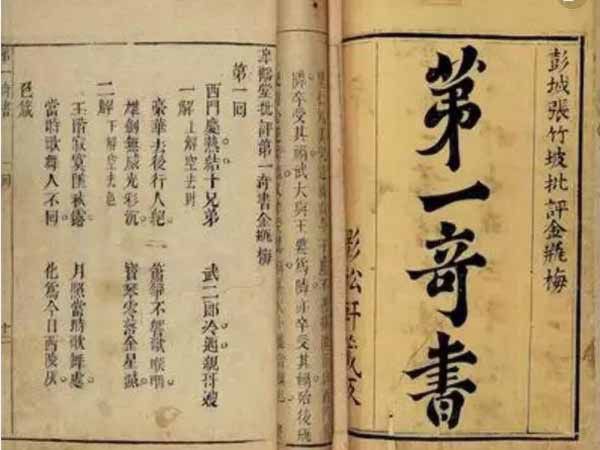 彭城張竹坡批評金瓶梅
第一奇書
影松軒藏板
卒受其禍武大與王婆為鄰亦卒受其禍殆後
皋鶴堂批評第一奇書金瓶梅
第一回
西門慶熱結十兄弟　武二郎冷遇親哥嫂
一解　上解空去財
豪華去後行人絕　簫箏不響歌喉咽
雄劍無威光彩沉　寶琴零落金星滅
二解　下解空去色
玉階寂寞墜秋露　月照當時歌舞處
當時歌舞人不回　化為今日西陵灰
色箴
第一奇書　回　十二